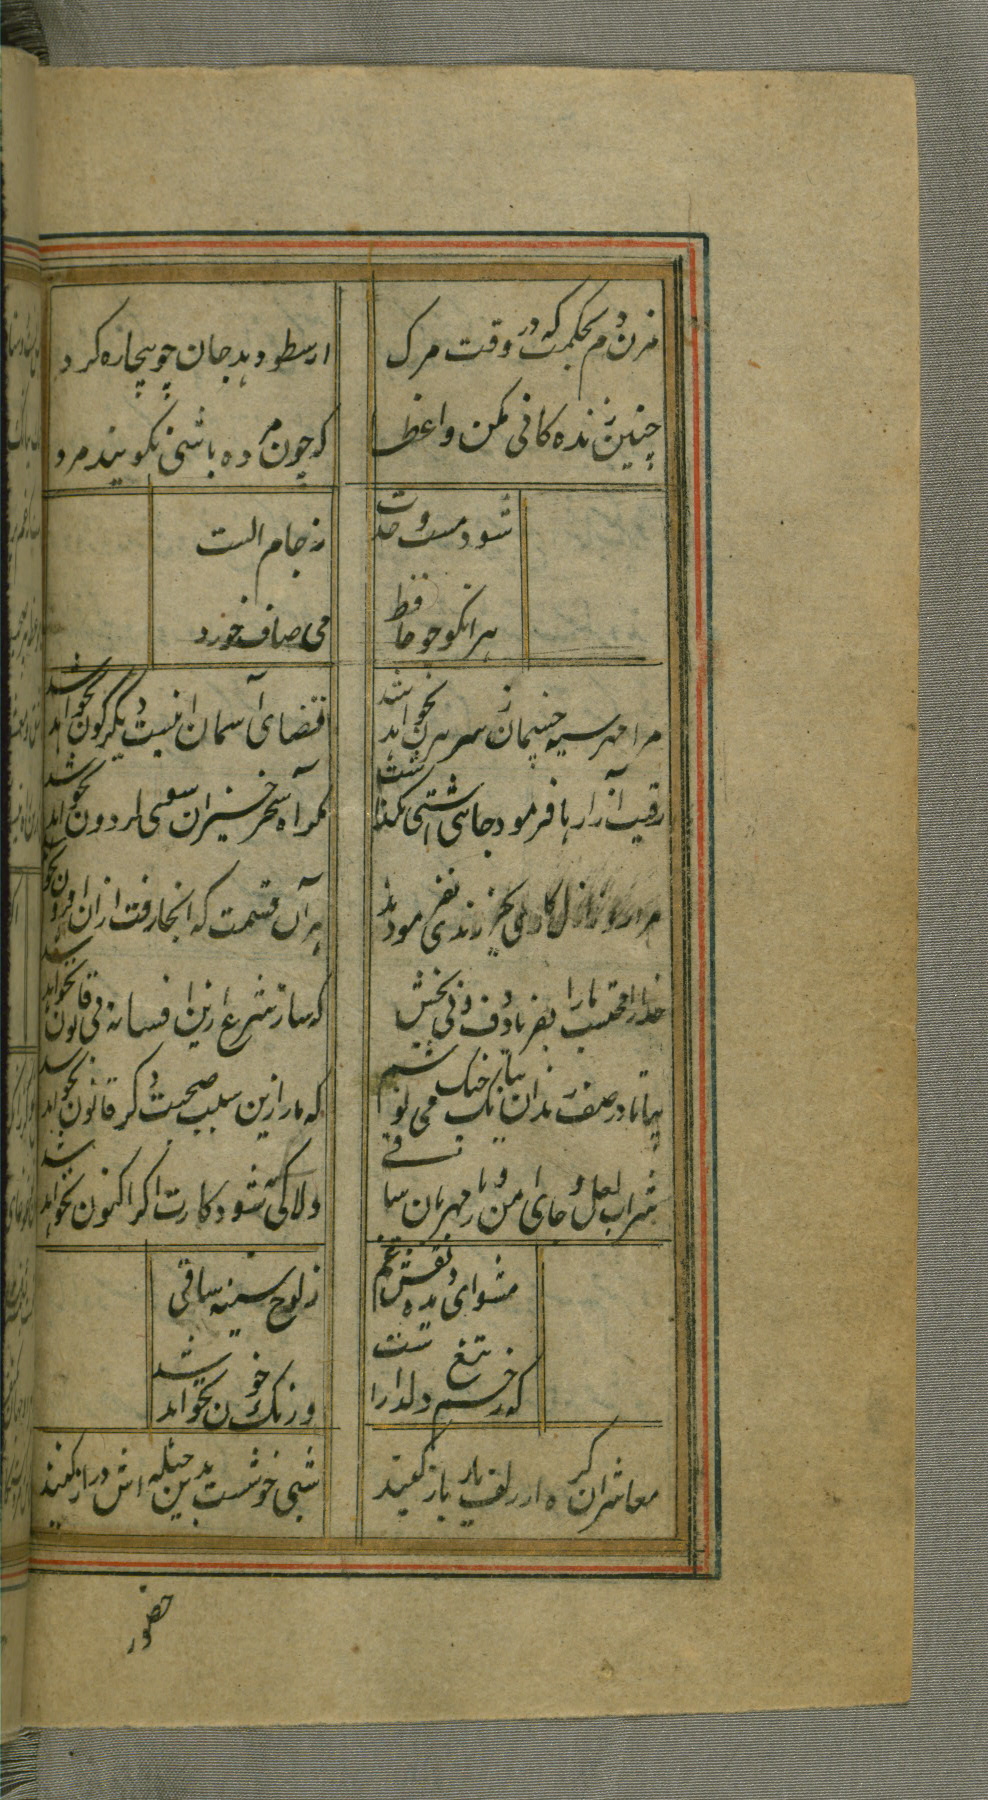 مزن دم ز حکمت که در وقت مرک
ارسطو دهد جان چو بیچاره کرد
چنین زنده کافی مکن واعظا
که چون مرده باشی نکویند مرد
شود مست وحدت
ز جام الست
هر انکو چو حافظ
می صاف خورد
مرا مهر سیه چشمان ز سر بیرن نخواهد شد
قضای آسمان است دیگرگون نخواهد شد
رقیب آزارها فرمود جای آشتی نگذاشت
مکر آه سحر خیزان سوی کردون نخواهد شد
مرا روز ازل کاری بجز رندی نفرمودند
هر آن قسمت که انجا رفت از ان افزون نخواهد شد
خدا را محتسب ما را بفریاد دف و نی بخش
که ساز شرع ازین افسانه بی قانون نخواهد شد
که ما را زین سلب صحبت دکر قانون نخواهد شد
شراب لعل و جای امن و یار مهربان ساقی
دلا کی به شود کارت اکر اکنون نخواهد شد
مشوای دیده نقش غم
ز لوح سینه ساقی
که زخم تیغ دلدار است
و رنک خون نخواهد شد
معاشران کره از زلف یار باز کنید
شبی خوشست بدین حیله اش دراز کنید
حضور